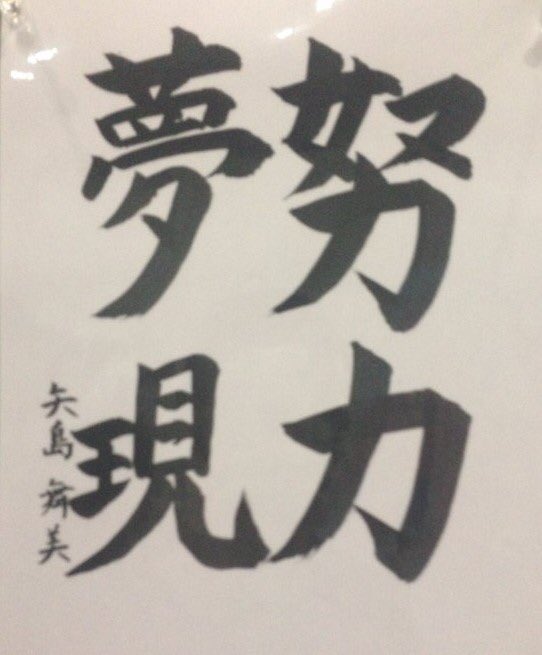 努力
夢現
矢島舞美